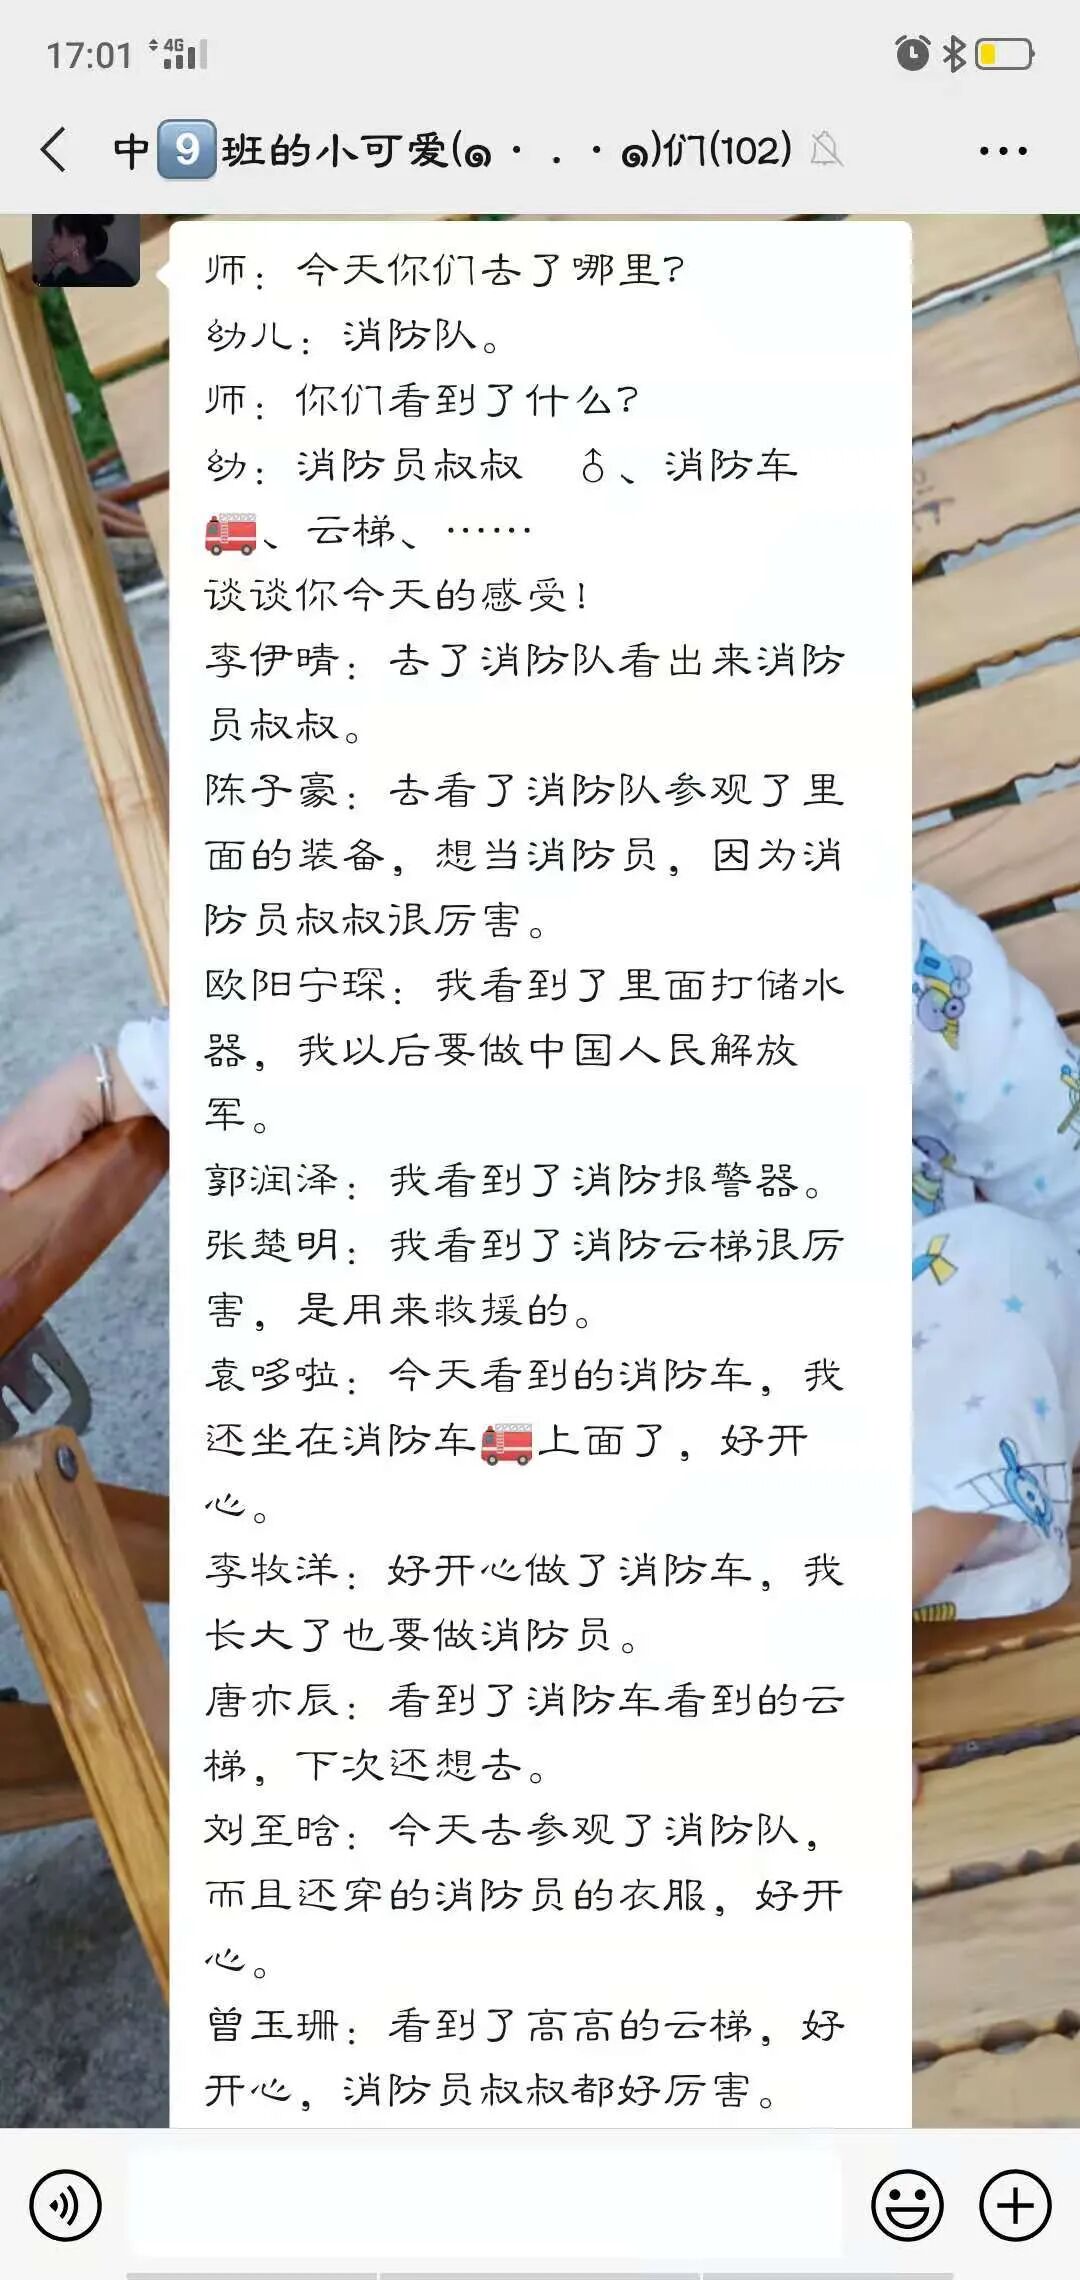 17:01 4G
中9️⃣班的小可爱(๑・.・๑)们(102)
师：今天你们去了哪里？
幼儿：消防队。
师：你们看到了什么？
幼：消防员叔叔 ♂、消防车
🚒、云梯、……
谈谈你今天的感受！
李伊晴：去了消防队看出来消防
员叔叔。
陈予豪：去看了消防队参观了里
面的装备，想当消防员，因为消
防员叔叔很厉害。
欧阳宁琛：我看到了里面打储水
器，我以后要做中国人民解放
军。
郭润泽：我看到了消防报警器。
张楚明：我看到了消防云梯很厉
害，是用来救援的。
袁哆啦：今天看到的消防车，我
还坐在消防车🚒上面了，好开
心。
李牧洋：好开心做了消防车，我
长大了也要做消防员。
唐亦辰：看到了消防车看到的云
梯，下次还想去。
刘至晗：今天去参观了消防队，
而且还穿的消防员的衣服，好开
心。
曾玉珊：看到了高高的云梯，好
开心，消防员叔叔都好厉害。